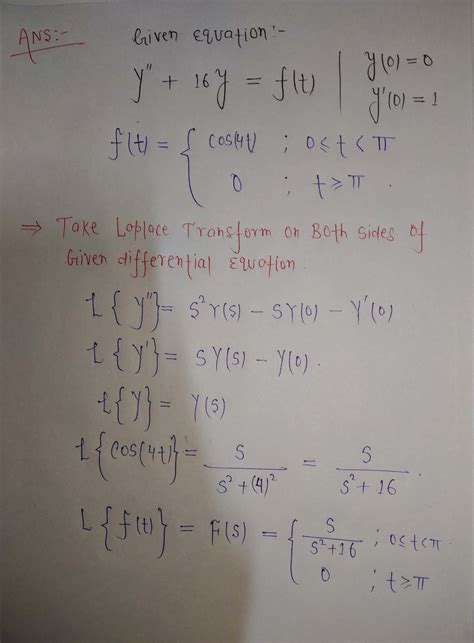 ANS:- Given Equation:-
y'' + 16y = f(t) | y(0) = 0
y'(0) = 1
f(t) = { cos(4t) ; 0 ≤ t < π
0 ; t ≥ π .
⇒ Take Laplace Transform on Both sides of
Given differential Equation.
L{y''} = s²Y(s) - sY(0) - Y'(0)
L{y'} = sY(s) - Y(0) .
L{Y} = Y(s)
L{cos(4t)} = s / s² + (4)² = s / s² + 16 .
L{f(t)} = F(s) = { s / s² + 16 ; 0 ≤ t < π
0 ; t ≥ π